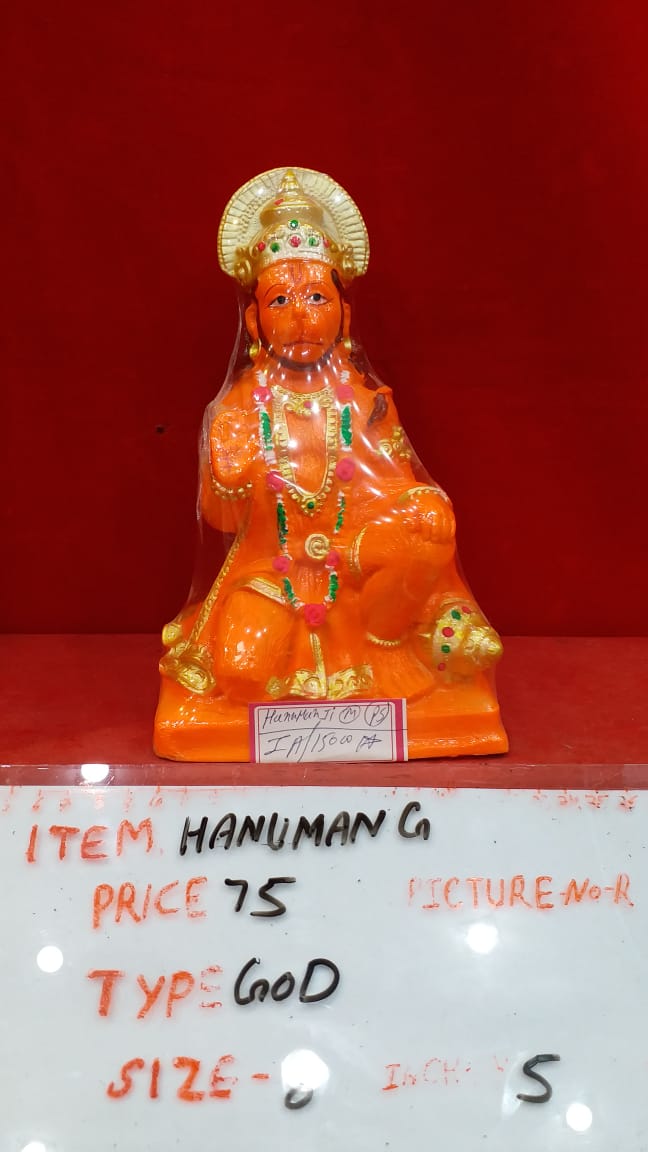 HanuManJi (M) (PS)
IA/15000
ITEM HANUMAN G
PRICE 75 PICTURE-NO-R
TYPE GOD
SIZE - 8 INCH 5